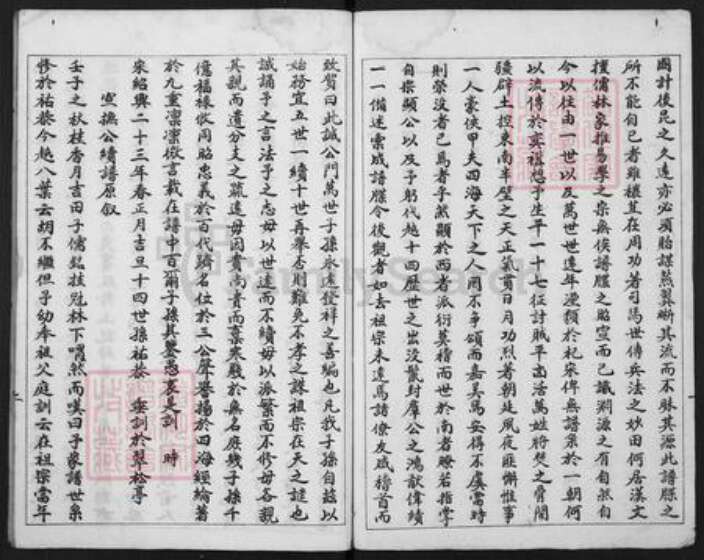 國計後昆之久遠亦必須貽謀燕翼晰其流而不昧其源此譜牒之
所不能自已者雖樓其在周功著司馬世傳兵法之妙田何居漢文
擅儒林家推易學之宗無俟譜牒之昭宣而已識淵源之有自然自
今以往由一世以及萬世世遠年湮類於杞宋俾無譜系於一朝何
以流傳於奕禩想予生平一十七征討賊平寇活萬姓將焚之骨闢
疆辟土控東南半壁之天正氣貫日月功烈著朝廷夙夜匪懈惟事
一人豪俠甲夫四海天下之人聞不爭頌而嘉美焉安得不虞當時
則榮沒者已焉者乎然顯於西者派衍莫稽而世於南者瞭若指掌
自宗顯公以及予躬代越十四歷世之出沒襲封群公之鴻猷偉績
一一備述索成譜牒令後觀者如去祖宗未遠焉諸僚友咸稽首而
致賀曰此誠公門萬世子孫永遠發祥之善編也凡我子孫自茲以
始務宜五世一續十世再舉否則難免不孝之誅祖宗在天之譴也
誠誦予之言法予之志毋以世遠而不續毋以派繁而不修毋各親
其親而遺分支之疏遠毋因貴高貴而棄寒賤於無名庶幾子孫千
億福祿攸同昭忠義於百代躋名位於三公聲譽揚於四海經綸著
於九重凜凜微言載在譜中百爾子孫其鑒愚衷是訓 時
宋紹興二十三年春正月吉旦十四世孫祐恭 垂訓於翠松亭
宣撫公續譜原叙
壬子之秋桂香月吉田子儒銘技冠林下喟然而嘆曰予家譜世系
修於祐恭今越八葉云胡不繼但予幼奉祖父庭訓云在祖宗當年